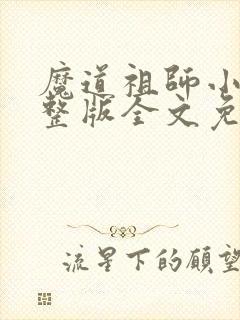 魔道祖師小
整版全文免
流星下的願望